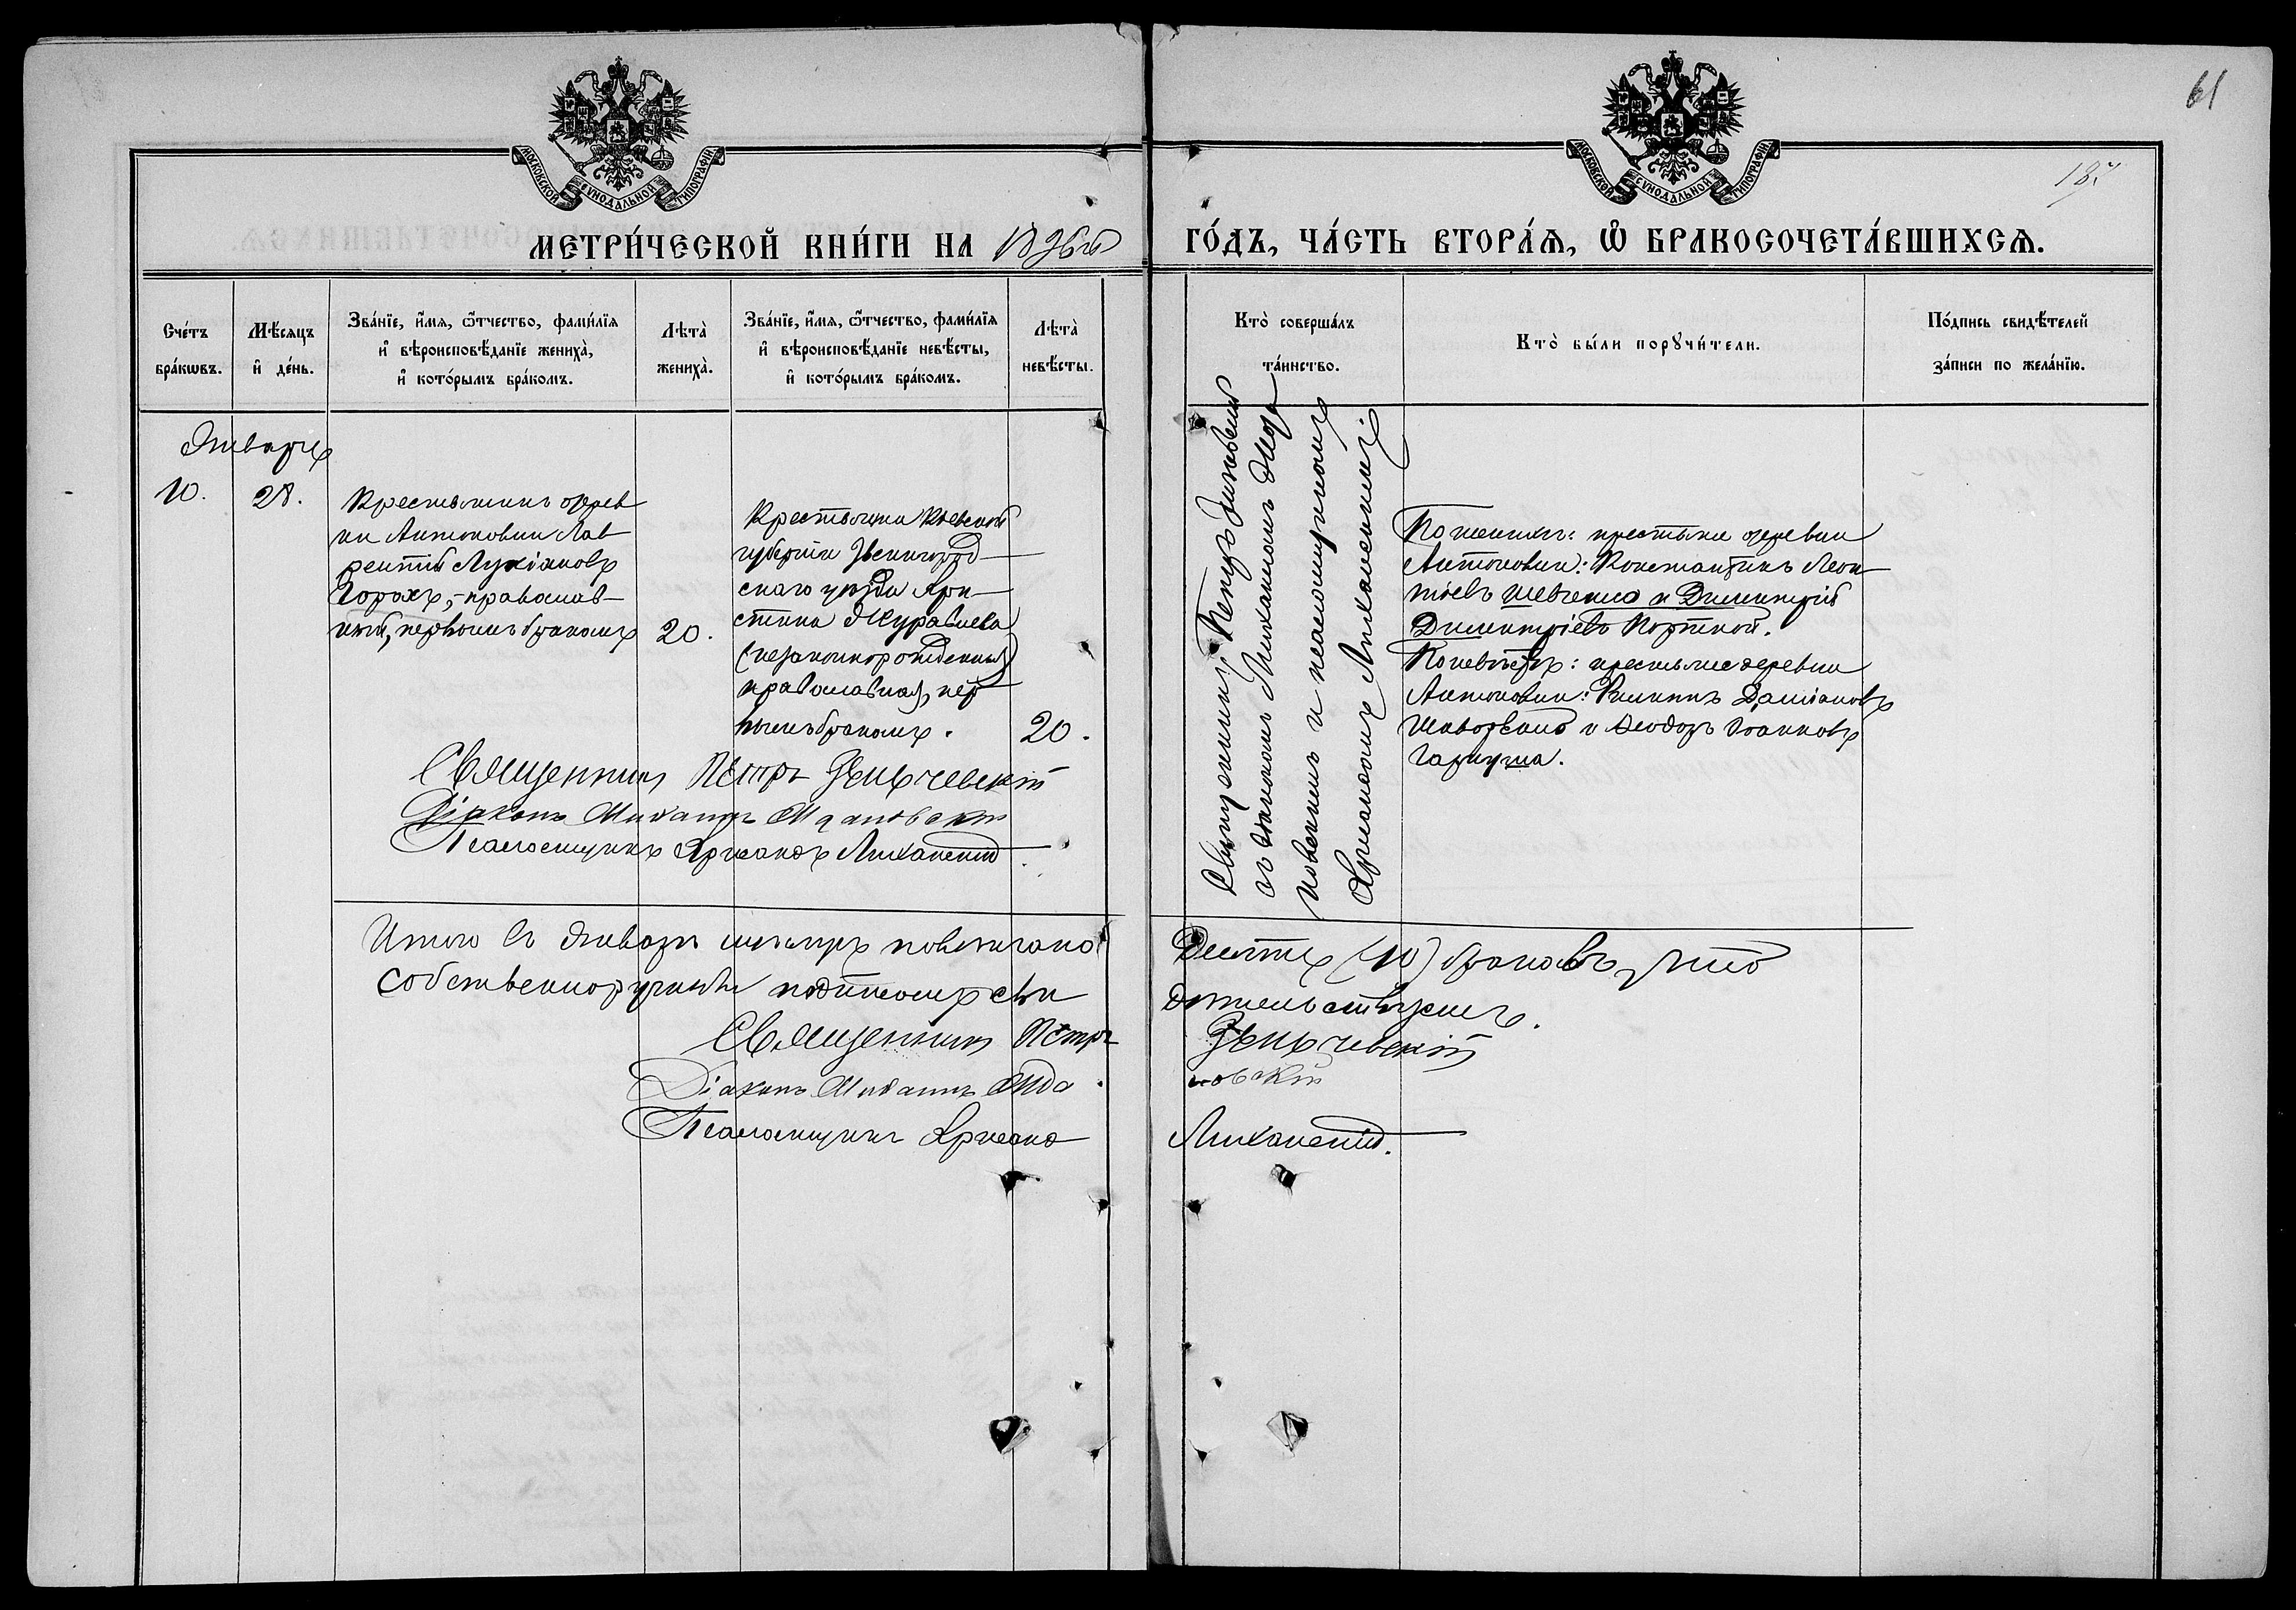 61
187
МОСКОВСКОЙ СѴНОДАЛЬНОЙ ТИПОГРАФІИ
МОСКОВСКОЙ СѴНОДАЛЬНОЙ ТИПОГРАФІИ
МЕТРИ́ЧЕСКОЙ КНИ́ГИ НА 1896й ГО́ДЪ, ЧА́СТЬ ВТОРА́Ѧ, Ѽ БРАКОСОЧЕТА́ВШИХСѦ.
Сче́тъ бра́кѡвъ.
Мѣ́сяцъ и҆ де́нь.
Зва́нїе, и҆́мѧ, ѻ҆́тчество, фами́лїѧ
и҆ вѣроисповѣ́данїе жениха̀,
и҆ кото́рымъ бра́комъ.
Лѣта̀ жениха̀.
Зва́нїе, и҆́мѧ, ѻ҆́тчество, фами́лїѧ
и҆ вѣроисповѣ́данїе невѣ́сты,
и҆ кото́рымъ бра́комъ.
Лѣта̀ невѣ́сты.
Кто̀ соверша́лъ
та́инство.
Кто̀ бы́ли порꙋчи́тели.
По́дпись свидѣ́телей
за́писи по жела́нїю.
Январь
10.
28.
Крестьянинъ дерев
ни Антоновки Лав
рентій Лукіановъ
Горохъ, православ
ный, первымъ бракомъ
20.
Крестьянка Кіевской
губерніи Звенигород
скаго уѣзда Хри
стина Журавлева
(незаконнорожденная)
православная, пер
вымъ бракомъ.
20.
Священникъ Петръ
съ діакономъ Михаиломъ Мда
новскимъ и псаломщикомъ
По женихѣ: крестьяне деревни
Антоновки: Константинъ Леон
тіевъ Шевченко и Димитрій
Димитріевъ Портной.
По невѣстѣ: крестьяне деревни
Антоновки: Филиппъ Даміановъ
и Ѳеодоръ Іоанновъ
Гаркуша.
Священникъ Петръ
Діаконъ Михаилъ
Псаломщикъ
Итого въ Январѣ мѣсяцѣ повѣнчано Десять (10) браковъ, что
собственноручнымъ подписомъ сви дѣтельствуемъ.
Священникъ Петръ
Діаконъ Михаилъ Мда новскій
Псаломщикъ